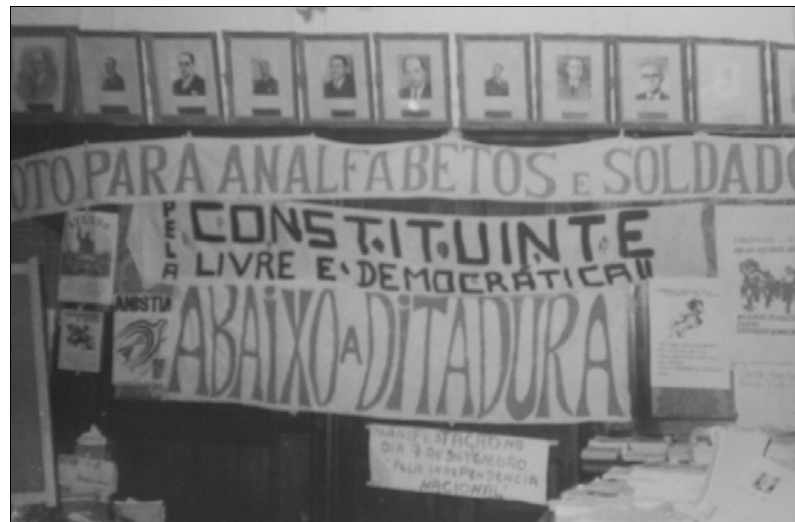 OTO PARA ANALFABETOS E SOLDADO
PELA CONSTITUINTE
LIVRE E DEMOCRÁTICA"
ANISTIA
ABAIXO A DITADURA
MANIFESTAÇÃO NO
DIA 7 DE SETEMBRO
"PELA INDEPENDENCIA
NACIONAL"